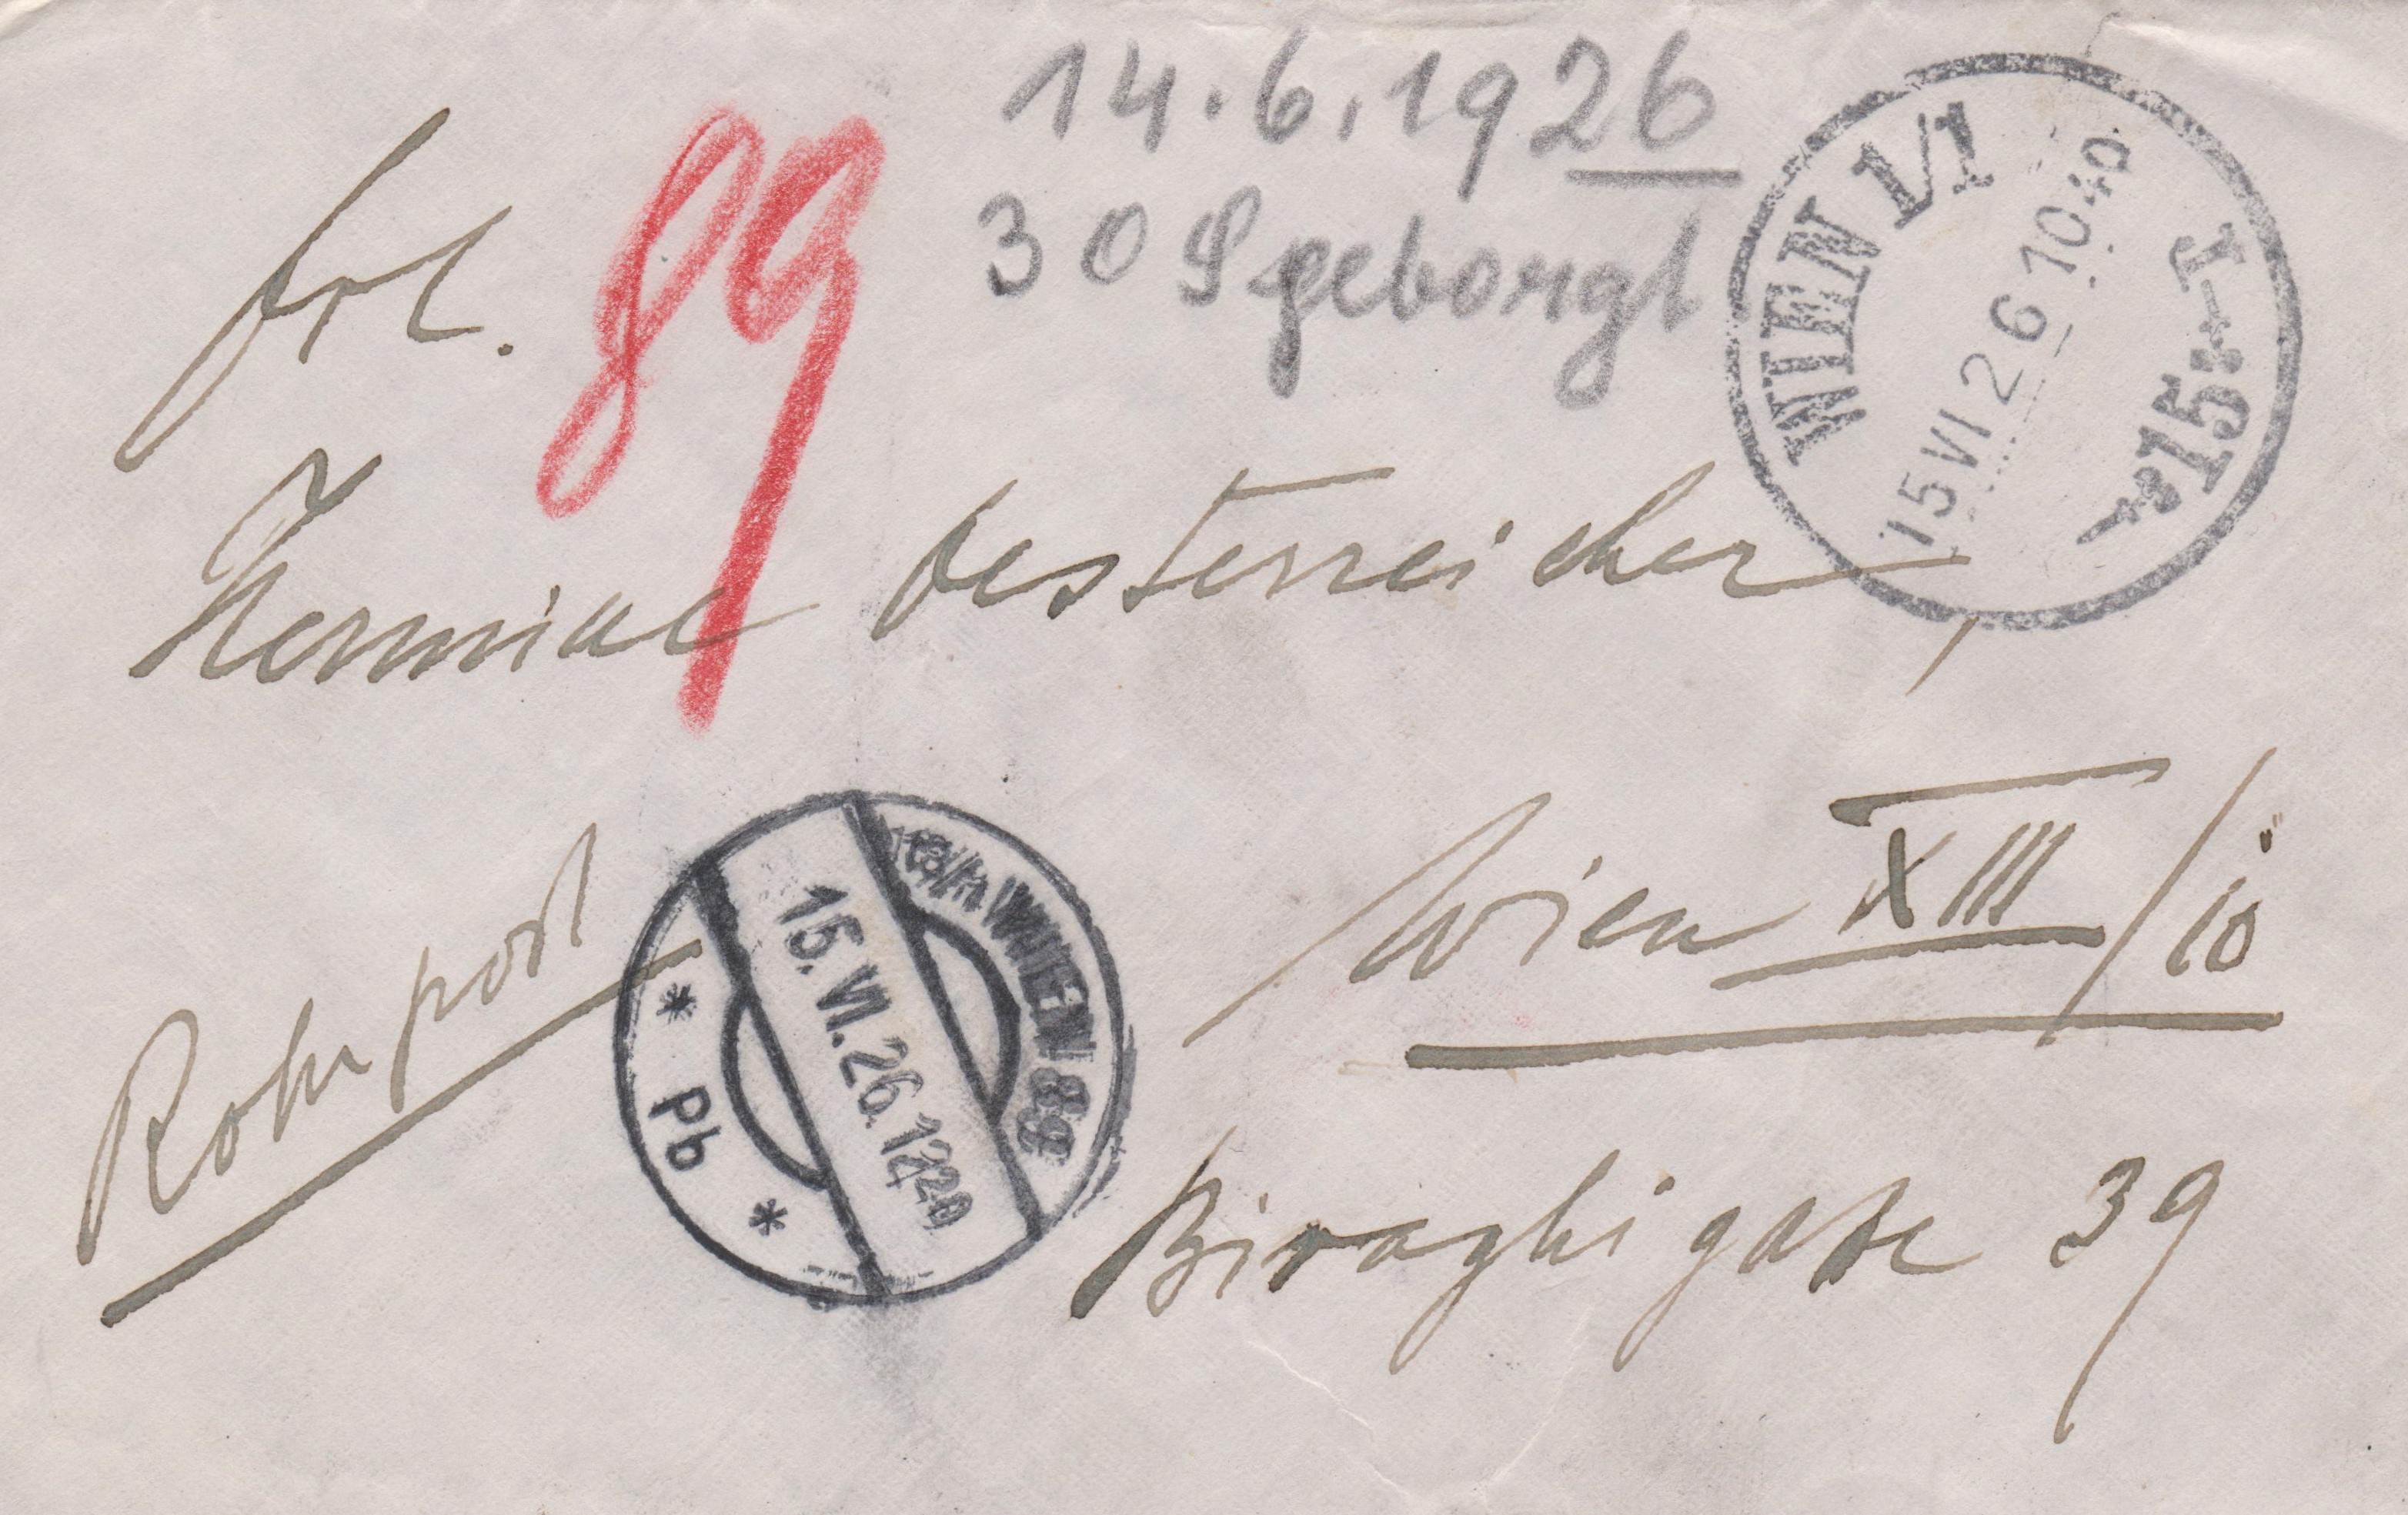 14.6.1926
30 S geborgt
Frl.
89
Hermine Oesterreicher,
Wien XIII/10
Biraghigasse 39
Rohrpost
WIEN 1/1
15 VI 26 10 40
*15*-T
WIEN 89
15.VI.26.12|20
* Pb *